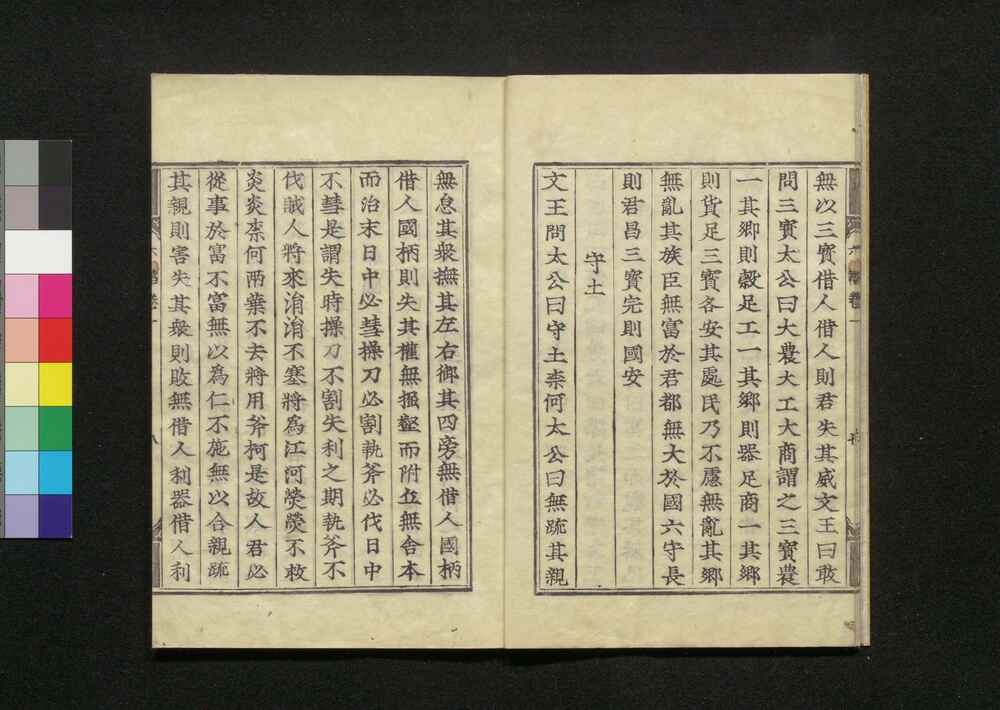 無以三寶借人借人則君失其威文王曰敢
問三寶太公曰大農大工大商謂之三寶農
一其鄉則穀足工一其鄉則器足商一其鄉
則貨足三寶各安其處民乃不慮無亂其鄉
無亂其族臣無富於君都無大於國六守長
則君昌三寶完則國安
守土
文王問太公曰守土柰何太公曰無疏其親
無怠其衆撫其左右御其四旁無借人國柄
借人國柄則失其權無掘壑而附丘無舍本
而治末日中必彗操刀必割執斧必伐日中
不彗是謂失時操刀不割失利之期執斧不
伐賊人將來涓涓不塞將爲江河熒熒不救
炎炎柰何兩葉不去將用斧柯是故人君必
從事於富不富無以爲仁不施無以合親疏
其親則害失其衆則敗無借人利器借人利